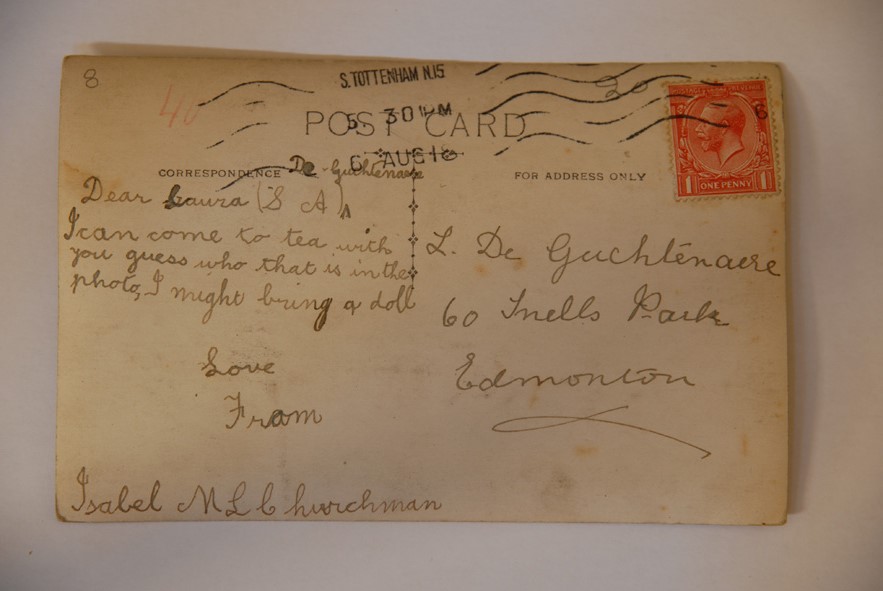 8
40
S.TOTTENHAM N.15
5. 30 PM
6 AUG 18
POST CARD
CORRESPONDENCE
FOR ADDRESS ONLY
POSTAGE REVENUE
1 ONE PENNY 1
De Guchtenaere
Dear Laura (S A)^
I can come to tea with
you guess who that is in the
photo, I might bring a doll
Love
From
Isabel M L Churchman
L. De Guchtenaere
60 Snells Park
Edmonton